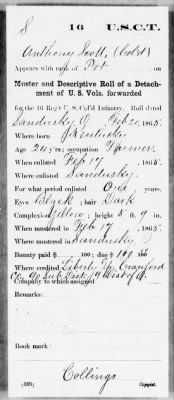 S 16 U.S.C.T.
Anthony Scott, (Col'd)
Appears with rank of Pvt on
Muster and Descriptive Roll of a Detach-
ment of U. S. Vols. forwarded
for the 16 Reg't U. S. Col'd Infantry. Roll dated
Sandusky, O Feb 20, 1865.
Where born Kentucky
Age 24 y'rs; occupation Farmer
When enlisted Feb 17, 1865.
Where enlisted Sandusky
For what period enlisted One years.
Eyes Black; hair Dark
Complexion Yellow; height 5 ft. 9 in.
When mustered in Feb 17, 1865.
Where mustered in Sandusky
Bounty paid $ 100; due $ 100
Where credited Liberty Tp Crawford
Co, Sub Dist. Dist. O.
Company to which assigned
Remarks:
Book mark:
Collings
(339) Copyist.